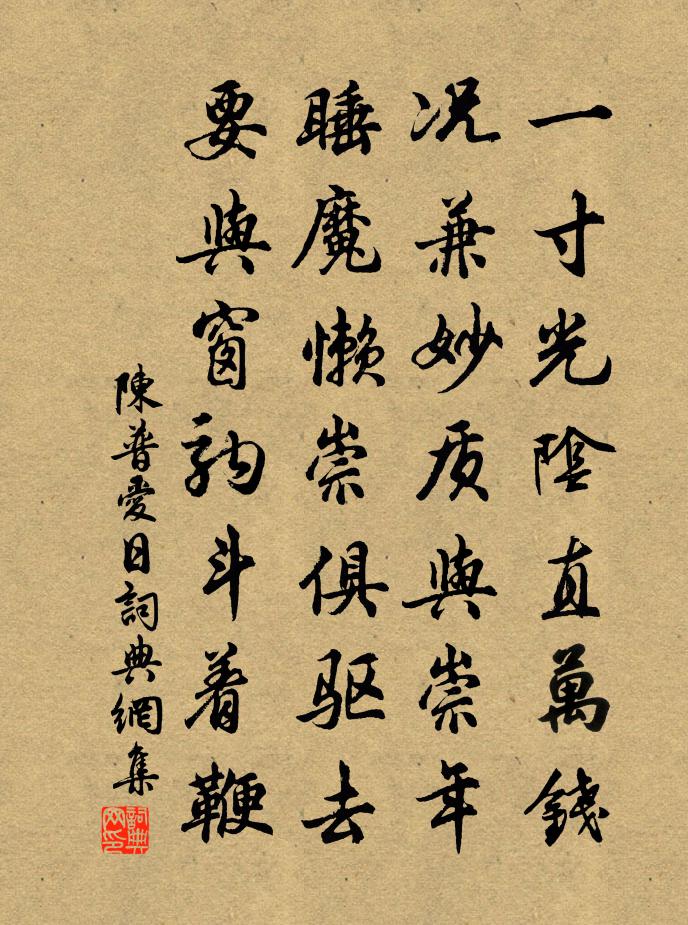 一寸光陰直萬錢
况兼妙质與崇年
睡魔懒崇俱驱去
要與窗駒斗着鞭
陳普愛日詞典網集
詞典网印